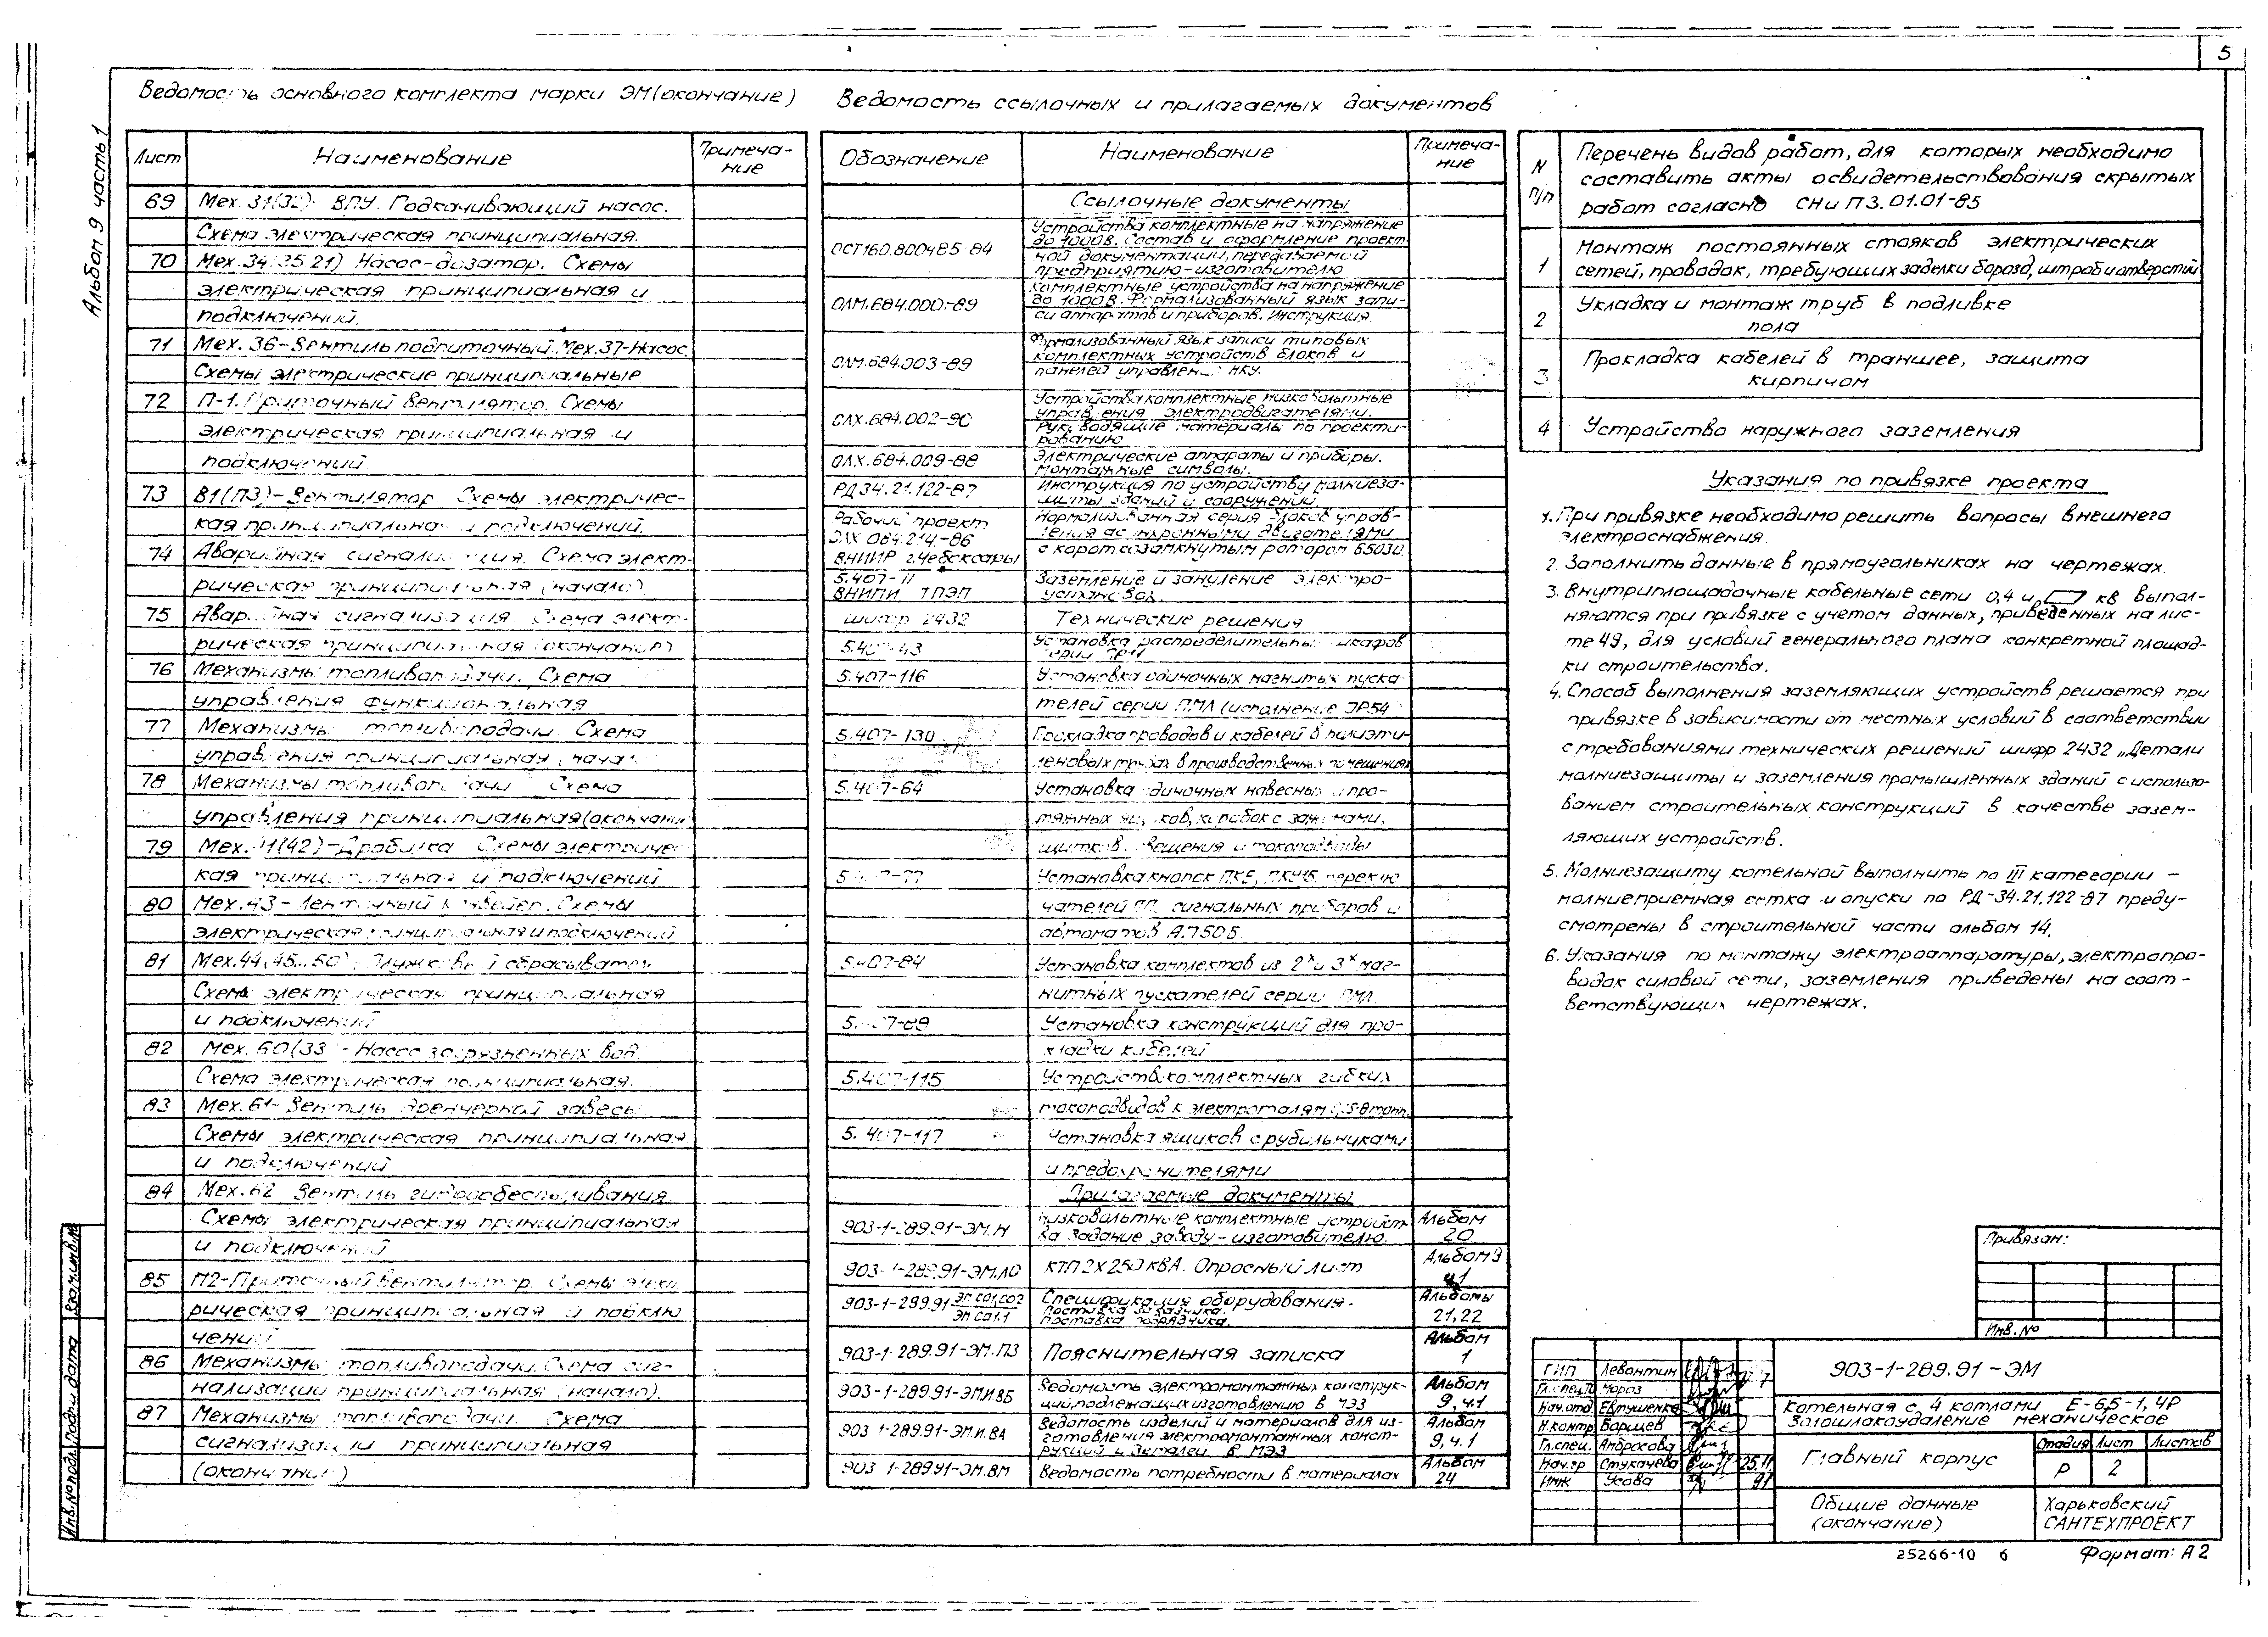 5
Альбом 9 часть 1
Ведомость основного комплекта марки ЭМ (окончание)
Лист Наименование Примеча-
ние
69 Мех. 31(32)- ВПУ. Подкачивающий насос.
Схема электрическая принципиальная.
70 Мех. 34(35.21) Насос-дозатор. Схемы
электрическая принципиальная и
подключений.
71 Мех. 36-Вентиль подпиточный. Мех. 37-Насос.
Схемы электрические принципиальные
72 П-1. Приточный вентилятор. Схемы
электрическая принципиальная и
подключений
73 В1(П3)-Вентилятор. Схемы электричес-
кая принципиальная и подключений.
74 Аварийная сигнализация. Схема элект-
рическая принципиальная (начало).
75 Аварийная сигнализация. Схема элект-
рическая принципиальная (окончание)
76 Механизмы топливоподачи. Схема
управления функциональная
77 Механизмы топливоподачи. Схема
управления принципиальная (начал
78 Механизмы топливоподачи Схема
управления принципиальная (окончание
79 Мех. 41(42)-Дробилка Схемы электричес
кая принципиальная и подключений
80 Мех. 43- Ленточный конвейер. Схемы
электрическая принципиальная и подключений
81 Мех. 44(45...50)- Плужковый сбрасыватель.
Схемы электрическая принципиальная
и подключений
82 Мех. 60(33)- Насос загрязненных вод.
Схема электрическая принципиальная.
83 Мех. 61- Вентиль дренчерной завесы
Схемы электрическая принципиальная
и подключений
84 Мех. 62 Вентиль гидрообеспыливания.
Схемы электрическая принципиальная
и подключений
85 П2-Приточный вентилятор. Схемы элект
рическая принципиальная и подклю
чений
86 Механизмы топливоподачи. Схема сиг-
нализации принципиальная (начало).
87 Механизмы топливоподачи. Схема
сигнализации принципиальная
(окончание)
Ведомость ссылочных и прилагаемых документов
Обозначение Наименование Примеча-
ние
Ссылочные документы
ОСТ160.800485-84 Устройства комплектные на напряжение
до 1000В. Состав и оформление проект
ной документации, передаваемой
предприятию-изготовителю
ОЛМ.684.000-89 Комплектные устройства на напряжение
до 1000В. Формализованный язык запи-
си аппаратов и приборов. Инструкция.
ОЛМ.684.003-89 Формализованный язык записи типовых
комплектных устройств блоков и
панелей управления НКУ.
ОЛХ.684.002-90 Устройства комплектные низковольтные
управления электродвигателями.
Руководящие материалы по проекти-
рованию
ОЛХ.684.009-88 Электрические аппараты и приборы.
Монтажные символы.
РД34.21.122-87 Инструкция по устройству молниеза-
щиты зданий и сооружений
Рабочий проект
ОЛХ 084.214-86
ВНИИР г. Чебоксары Нормализованная серия блоков управ-
ления асинхронными двигателями
с короткозамкнутым ротором Б5030.
5.407-11
ВНИПИ ТПЭП Заземление и зануление электро-
установок.
шифр 2432 Технические решения
5.407-43 Установка распределительных шкафов
серии ПР11
5.407-116 Установка одиночных магнитых пуска
телей серии ПМЛ (исполнение JP54)
5.407-130 Прокладка проводов и кабелей в полиэти-
леновых трубах в производственных помещениях
5.407-64 Установка одиночных навесных и про-
тяжных ящиков, коробок с зажимами,
щитков освещения и токоподводы
5.407-77 Установка кнопок ПКЕ, ПКУ15 переклю
чателей ПП, сигнальных приборов и
автоматов А.7505
5.407-84 Установка комплектов из 2х и 3х маг-
нитных пускателей серии ПМЛ.
5.407-89 Установка конструкций для про-
кладки кабелей
5.407-115 Устройство комплектных гибких
токоподводов к электроталям 0,5-8тонн.
5.407-117 Установка ящиков с рубильниками
и предохранителями
Прилагаемые документы
903-1-289.91-ЭМ.Н Низковольтные комплектные устройст
ва Задание заводу-изготовителю. Альбом
20
903-1-289.91-ЭМ.ЛО КТП 2х250 кВА. Опросный лист Альбом 9
ч.1
903-1-289.91 ЭМ СО1,СО2
ЭМ СО1.1 Спецификация оборудования.
Поставка заказчика.
Поставка подрядчика. Альбомы
21,22
903-1-289.91-ЭМ.ПЗ Пояснительная записка Альбом
1
903-1-289.91-ЭМ.И.ВБ Ведомость электромонтажных конструк-
ций, подлежащих изготовлению в МЭЗ Альбом
9,ч.1
903 1-289.91-ЭМ.И.ВА Ведомость изделий и материалов для из-
готовления электромонтажных конст-
рукций и деталей в МЭЗ Альбом
9,ч.1
903 1-289.91-ЭМ.ВМ Ведомость потребности в материалах Альбом
24
N
п/п Перечень видов работ, для которых необходимо
составить акты освидетельствования скрытых
работ согласно СНиП 3.01.01-85
1 Монтаж постоянных стояков электрических
сетей, проводок, требующих заделки борозд, штроб и отверстий
2 Укладка и монтаж труб в подливке
пола
3 Прокладка кабелей в траншее, защита
кирпичом
4 Устройство наружного заземления
Указания по привязке проекта
1. При привязке необходимо решить вопросы внешнего
электроснабжения.
2 Заполнить данные в прямоугольниках на чертежах.
3. Внутриплощадочные кабельные сети 0,4 и кв выпол-
няются при привязке с учетом данных, приведенных на лис-
те 49, для условий генерального плана конкретной площад-
ки строительства.
4. Способ выполнения заземляющих устройств решается при
привязке в зависимости от местных условий в соответствии
с требованиями технических решений шифр 2432 „Детали
молниезащиты и заземления промышленных зданий с использо-
ванием строительных конструкций в качестве зазем-
ляющих устройств.
5. Молниезащиту котельной выполнить по III категории -
молниеприемная сетка и опуски по РД-34.21.122-87 преду-
смотрены в строительной части альбом 14.
6. Указания по монтажу электроаппаратуры, электропро-
водок силовой сети, заземления приведены на соот-
ветствующих чертежах.
Привязан:
Инв. №
ГИП Левонтин
Гл.спец. Мороз
Нач.отд Евтушенко
Н.контр Борщев
Гл.спец. Амбросова
Нач.гр Стукачева 25.11
Инж Усова 91
903-1-289.91-ЭМ
Котельная с 4 котлами Е-6,5-1,4Р
Золошлакоудаление механическое
Главный корпус
Стадия Лист Листов
Р 2
Общие данные
(окончание)
Харьковский
САНТЕХПРОЕКТ
Взам.инв.№
Подп и дата
Инв.№подл.
25266-10 6
Формат: А2